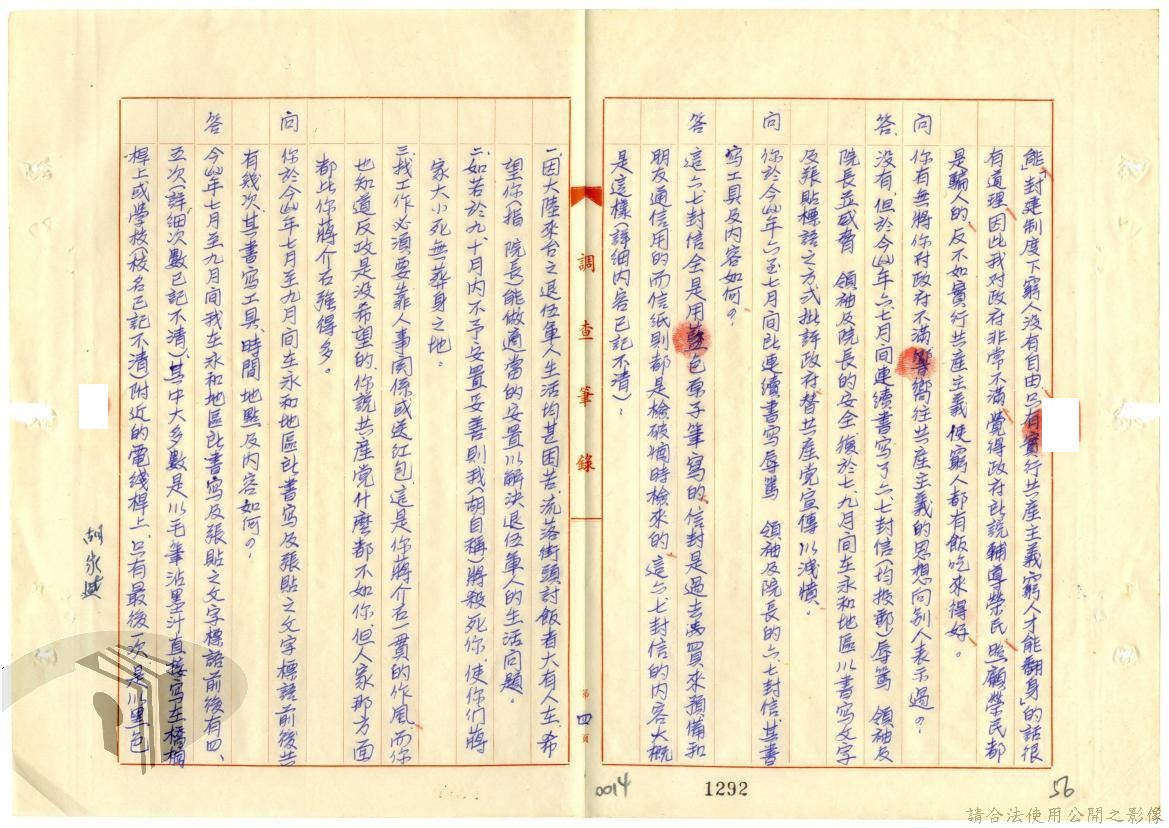 能「封建制度下窮人没有自由只有實行共産主義窮人才能翻身」的話很
有道理因此我对政府非常不滿覺得政府所說輔導榮民照顧榮民都
是騙人的反不如實行共産主義使窮人都有飯吃來得好。
问 你有無將你对政府不滿嚮往共産主義的思想向别人表示過？
答 没有，但於今年六七月間連續書写了六七封信(均投郵)辱罵 領袖及
院長並威脅 領袖及院長的安全復於七九月間在永和地區以書写文字
及張貼標語之方式批評政府替共産党宣傳以洩憤。
问 你於今年六至七月間所連續書写辱罵 領袖及院長的六七封信其書
写工具及内容如何？
答 這六七封信全是用藍色原子筆寫的，信封是過去買來預備和
朋友通信用的而信紙則都是檢破爛時檢來的，這六七封信的内容大概
是這樣(詳細内容已記不清)：
調查筆錄
第四頁
一因大陸來台之退伍軍人生活均甚困苦，流落街頭討飯者大有人在，希
望你(指 院長)能做適當的安置以解決退伍軍人的生活问題。
二如若於九十月内不予安置妥善則我(胡自稱)將殺死你，使你们蔣
家大小死無葬身之地。
三找工作必須要靠人事関係或送红包，這是你蔣介石一貫的作風，而你
也知道反攻是没希望的，你説共産党什麽都不如你，但人家那方面
都比你蔣介石強得多。
问 你於今年七月至九月间在永和地區所書写及張貼之文字標語前後共
有幾次，其書写工具、時間地點及内容如何？
答 今年七月至九月間我在永和地區所書寫及張貼之文字標語前後有四、
五次(詳細次數已記不清)，其中大多數是以毛筆沾墨汁直接写在橋欄
桿上或學校(校名已記不清)附近的電线桿上，只有最後一次是以黑色
0014
1292
56
請合法使用公開之影像